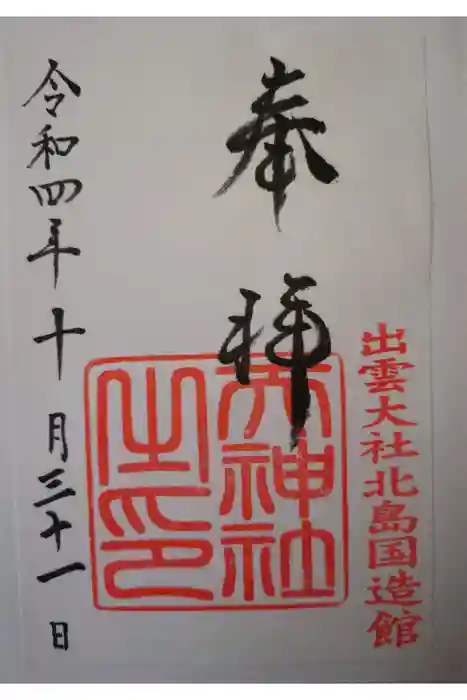 出雲大社北島国造館
奉拝
天神社
之印
令和四年十月三十一日